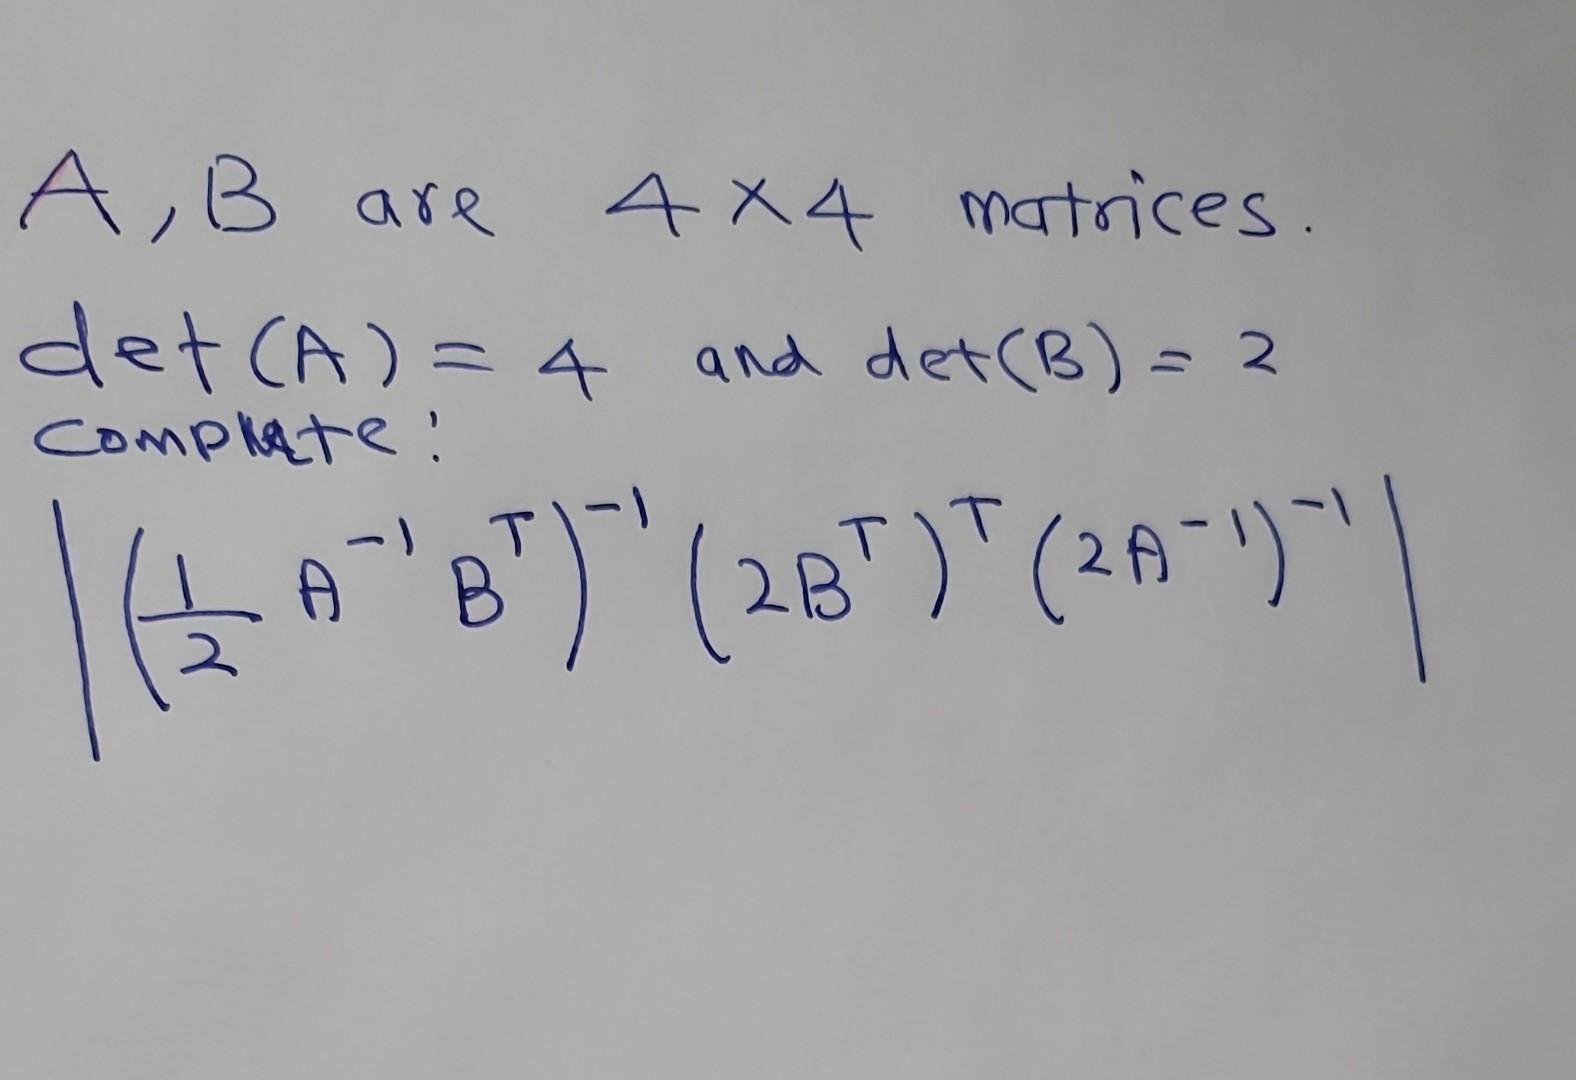 A, B are 4×4 matrices.
det(A) = 4 and det(B) = 2
:
|(1/2 A⁻¹ Bᵀ)⁻¹ (2Bᵀ)ᵀ (2A⁻¹)⁻¹|